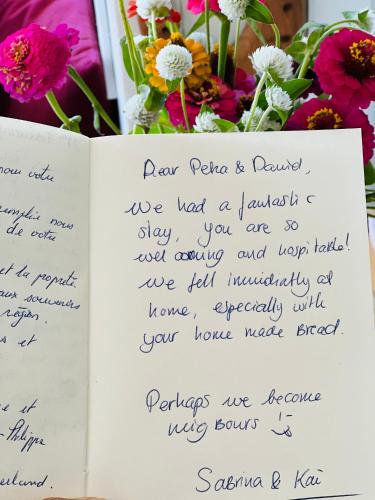 nous votre
nous
de votre
et la propreté
aux souvenirs
région.
s et
e et
Philippe
erland.
Dear Peka & David,
We had a fantastic
stay, you are so
welcoming and hospitable!
We fell immidiatly at
home, especially with
your home made Bread.
Perhaps we become
neigbours :-)
Sabrina & Kai